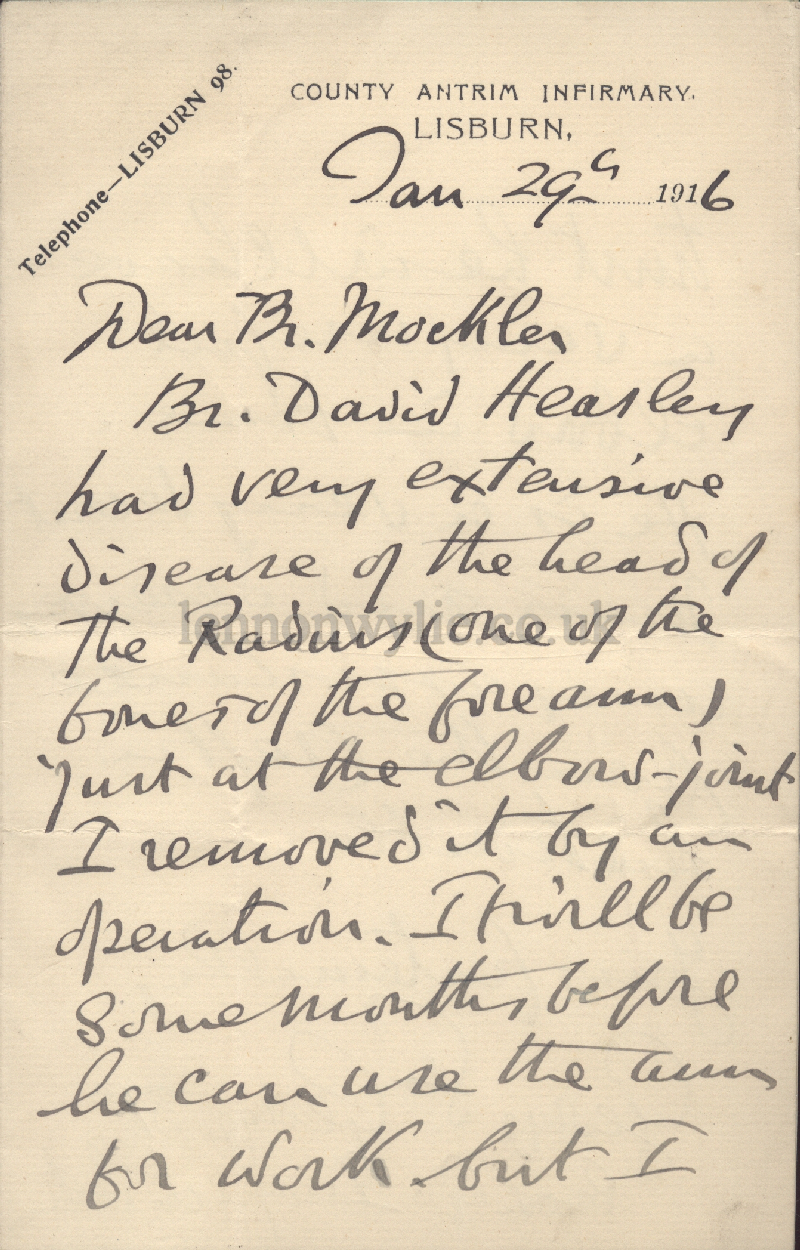 Telephone—LISBURN 98.
COUNTY ANTRIM INFIRMARY.
LISBURN,
Jan 29th 1916
Dear Br. Mockler
Br. David Heasley
had very extensive
disease of the head of
the Radius (one of the
bones of the forearm)
just at the elbow-joint
I removed it by an
operation. It will be
some months before
he can use the arm
for work. but I
lennonwylie.co.uk